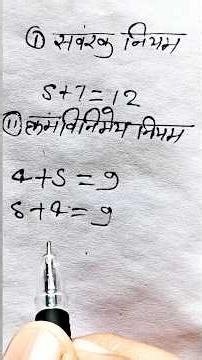 ① संवरक नियम
5+7=12
⑪ क्रमविनिमेय नियम
4+5=9
5+4=9